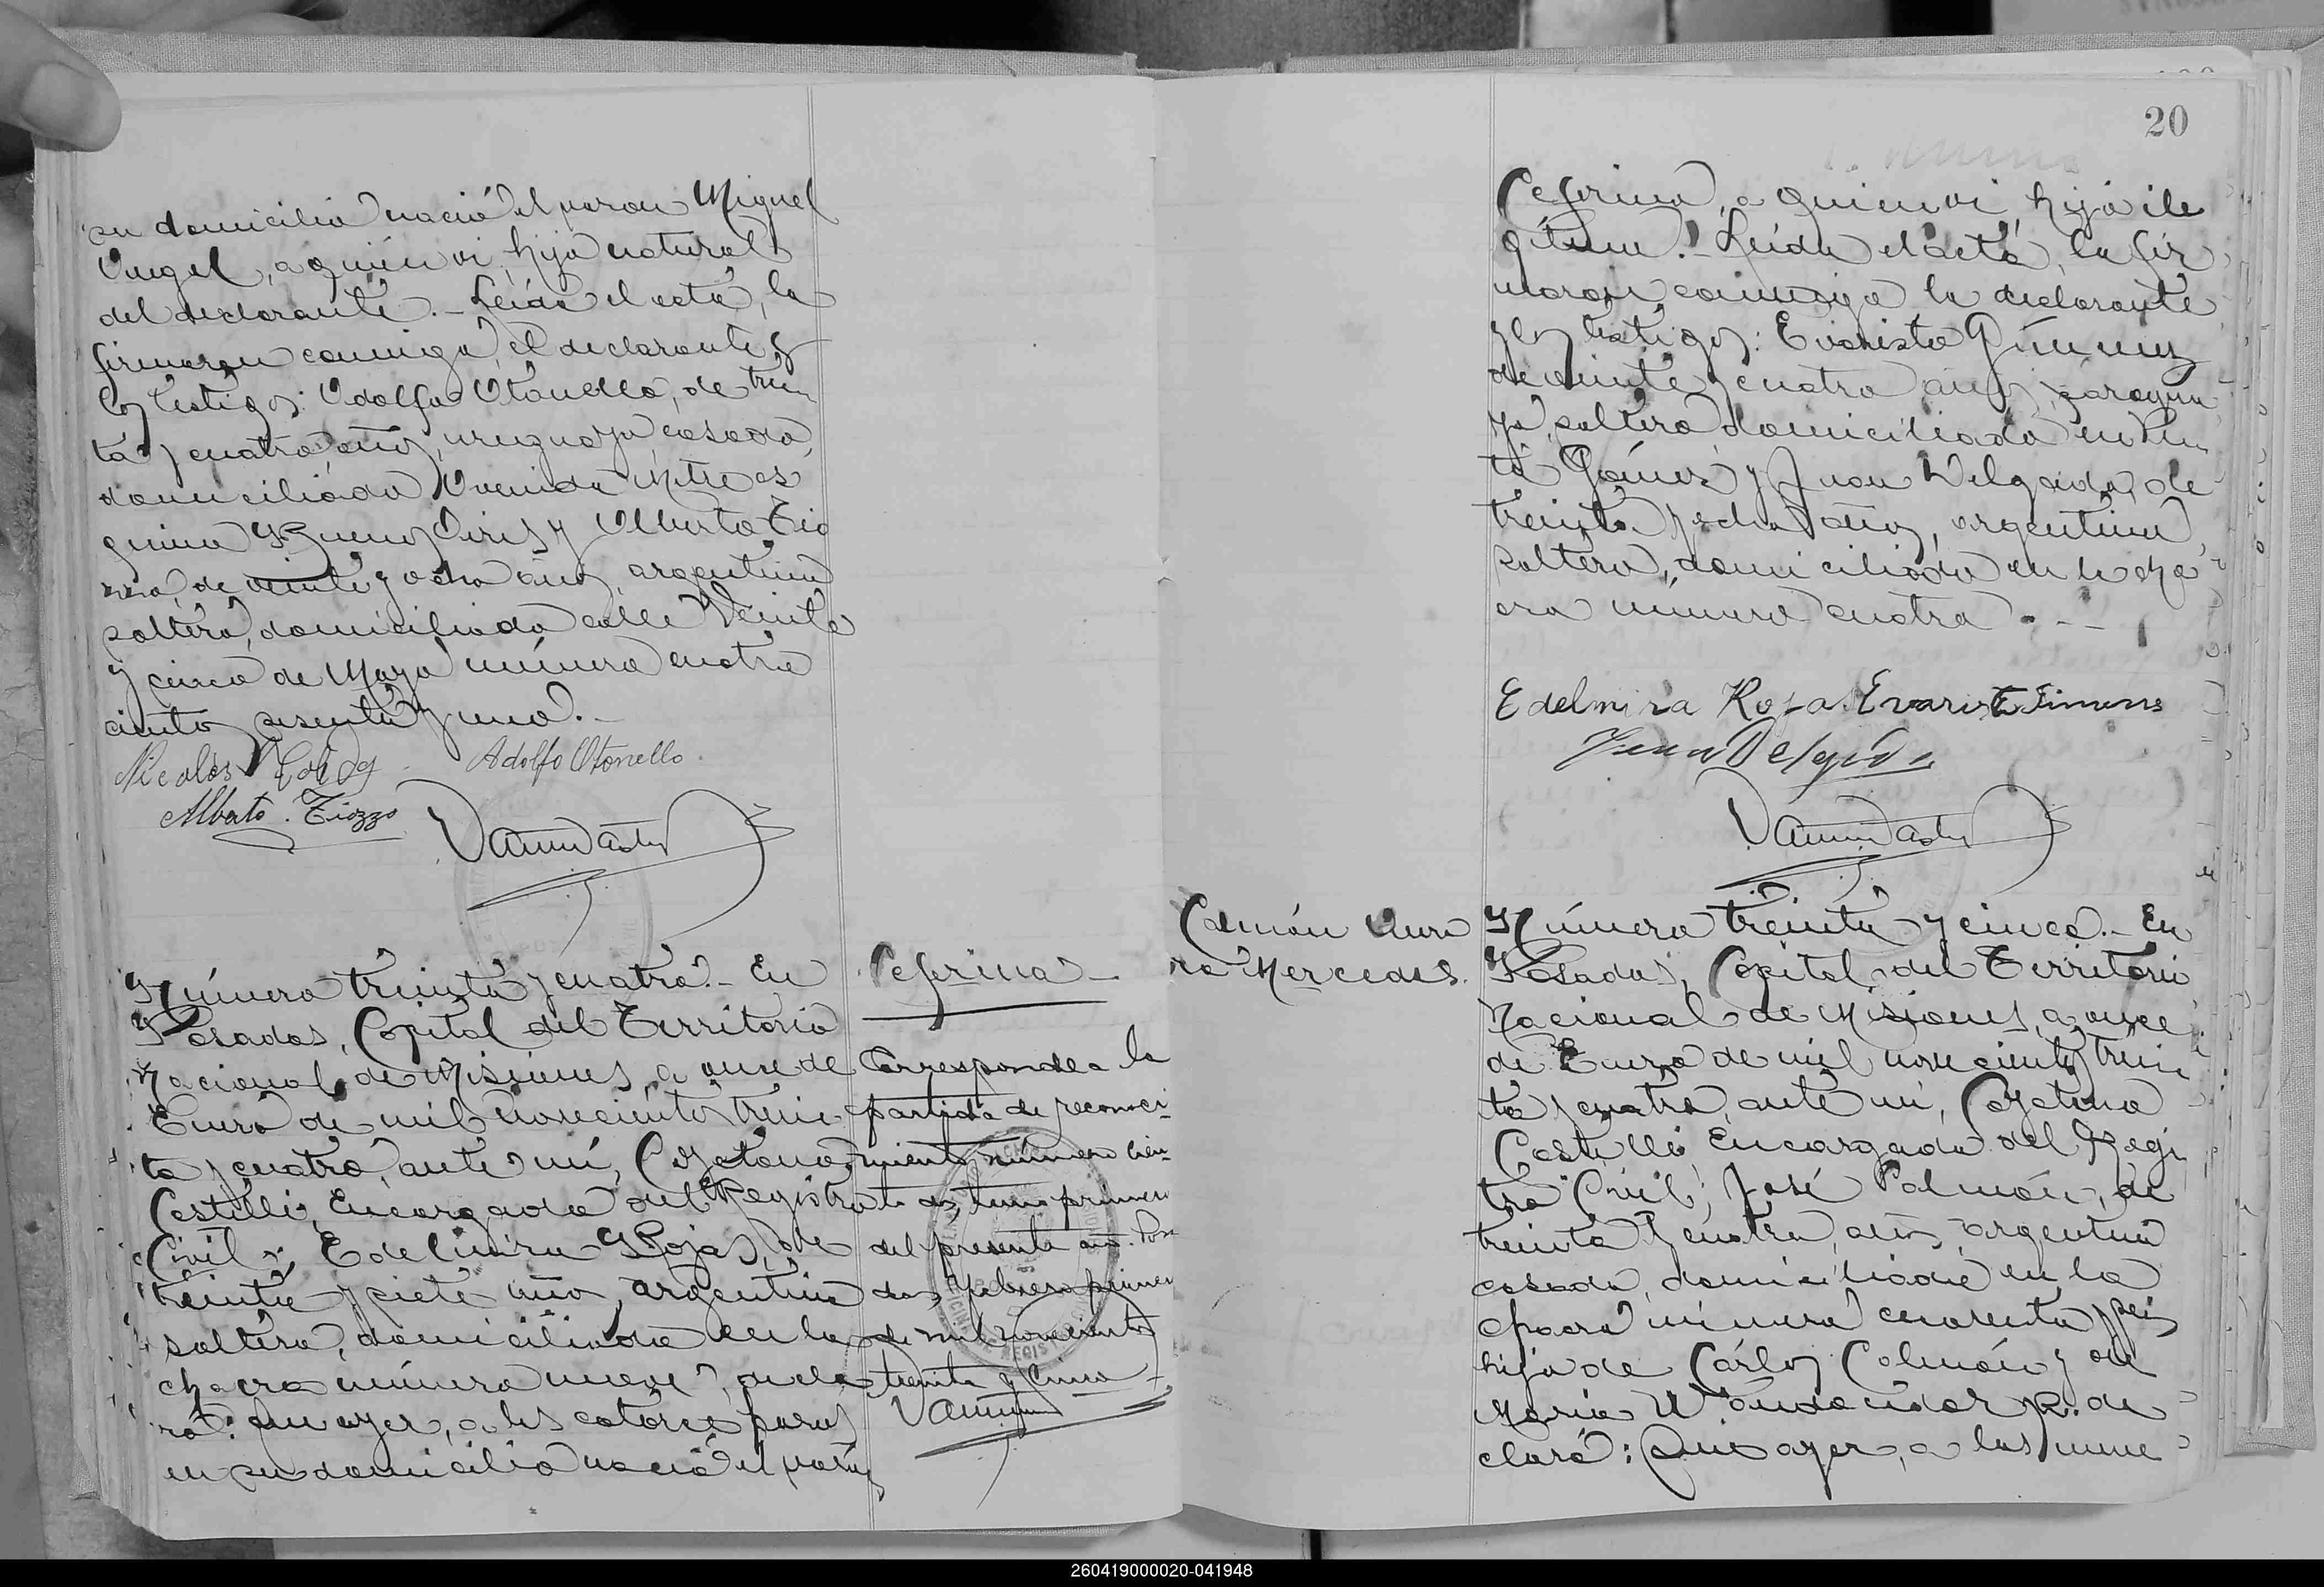 su domicilio nació el varon Miguel
Angel, a quien vi, hijo natural
del declarante.- Leida el acta, la
firmaron conmigo, el declarante y
los testigos: Adolfo Otonello, de trein
ta y cuatro años, uruguayo, casado,
domiciliado Avenida Mitre es
quina Buenos Aires y Alberto Tio
zzo, de veinte y ocho años, argentino
soltero, domiciliado calle Veinte
y cinco de Mayo número cuatro
cientos sesenta y uno.-
Nicolás
Adolfo Otonello.
Alberto Tiozzo
Número treinta y cuatro.- En
Posadas, Capital del Territorio
Nacional de Misiones, a once de
Enero de mil novecientos trein
ta y cuatro, ante mí, Cayetano
Castelli, Encargado del Registro
Civil; Edelmira Rojas, de
treinta y siete años, argentina
soltera, domiciliada en la
chacra número nueve, decla
ró: Que ayer, a las catorce horas
en su domicilio nació el varón
Ceferino-
Corresponde a la
partida de reconoci-
miento número cien-
to dos, tomo primero
del presente año. Posa
das, Febrero primero
de mil novecientos
treinta y cinco-
20
Ceferino, a quien vi, hijo ile
gítimo.- Leida el acta, la fir
maron conmigo la declarante
y los testigos: Evaristo Gimenez
de veinte y cuatro años, paragua
yo, soltero domiciliado en Pun
ta Gómez y Juan Delgado, de
treinta y ocho años, argentino,
soltero, domiciliado en la cha
cra número cuatro.--
Edelmira Rojas Evaristo Jimenes
Juan Delgado
Calmón Auro
ra Mercedes.
Número treinta y cinco.- En
Posadas, Capital del Territorio
Nacional de Misiones, a once
de Enero de mil novecientos trein
ta y cuatro, ante mí, Cayetano
Castelli, Encargado del Regis
tro Civil; José Calmón, de
treinta y cuatro años, argentino
casado, domiciliado en la
chacra número cuarenta y seis
hijo de Cárlos Calmón y de
María declaró: Que ayer, a las nueve